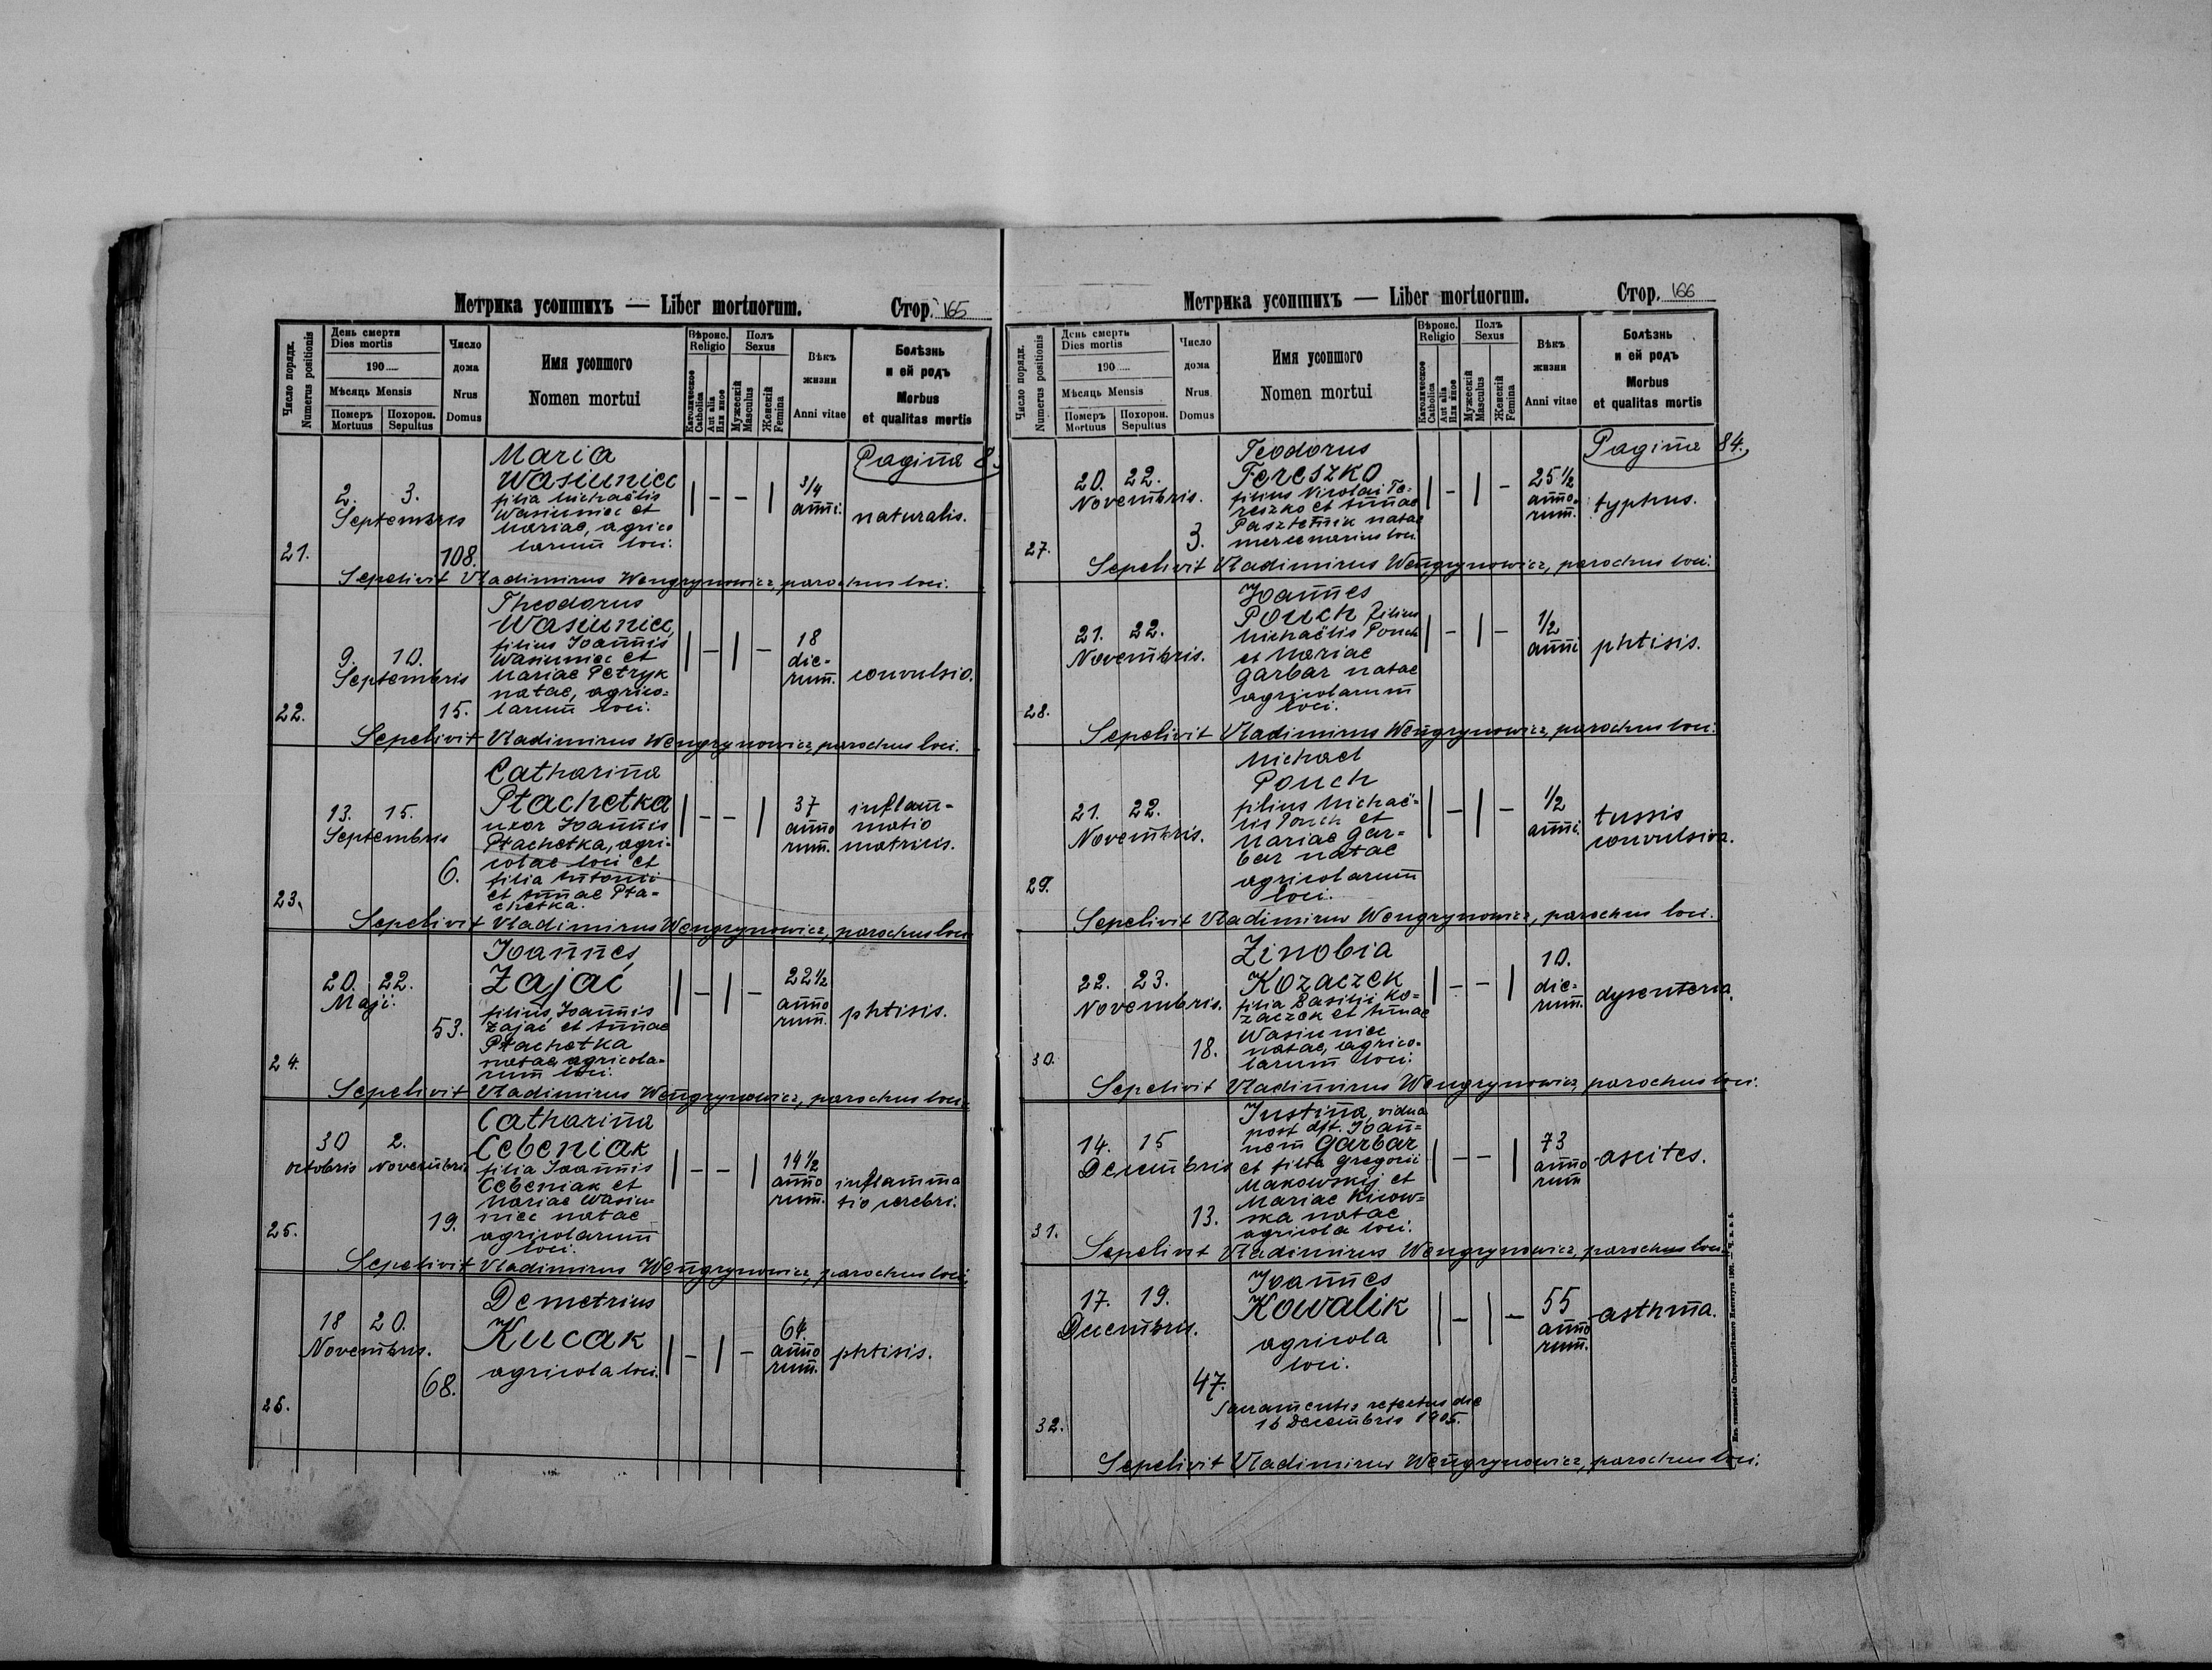 Метрика усопшихъ — Liber mortuorum.
Стор. 165
Число порядк.
Numerus positionis
День смерти
Dies mortis
190
Мѣсяць Mensis
Померъ
Mortuus
Похорон.
Sepultus
Число
дома
Nrus
Domus
Имя усопшого
Nomen mortui
Вѣроис.
Religio
Католическое
Catholica
Aut alia
Или иное
Полъ
Sexus
Мужескій
Masculus
Женскій
Femina
Вѣкъ
жизни
Anni vitae
Болѣзнь
и ей родъ
Morbus
et qualitas mortis
Pagina
21.
2. 3.
Septembris
108.
Maria
Wasiuniec
filia Michaëlis
Wasiuniec et
Mariae, agrico
larum loci.
3/4
anni.
naturalis.
Sepelivit Vladimirus Wengrynowicz, parochus loci.
22.
9. 10.
Septembris
15.
Theodorus
Wasiuniec,
filius Joannis
Wasiuniec et
Mariae Petryk
natae, agrico=
larum loci.
18
die=
rum.
convulsio.
Sepelivit Vladimirus Wengrynowicz, parochus loci.
23.
13. 15.
Septembris
6.
Catharina
Ptachetka
uxor Joannis
Ptachetka, agri-
colae loci et
filia Antonii
et Annae Pta=
chetka.
37
anno
rum.
inflam=
matio
matricis.
Sepelivit Vladimirus Wengrynowicz, parochus loci
24.
20. 22.
Maji.
53.
Joannes
Zajać
filius Joannis
Zajać et Annae
Ptachetka
natae agricola=
rum loci.
22 1/2
anno
rum.
phtisis.
Sepelivit Vladimirus Wengrynowicz, parochus loci.
25.
30 2.
octobris Novembris
19.
Catharina
Cebeniak
filia Joannis
Cebeniak et
Mariae Wasiu=
niec natae
agricolarum
loci.
14 1/2
anno
rum.
inflamma
tio cerebri.
Sepelivit Vladimirus Wengrynowicz, parochus loci.
26.
18 20.
Novembris.
68.
Demetrius
Kucak
agricola loci.
64.
anno
rum.
phtisis.
Метрика усопшихъ — Liber mortuorum.
Стор. 166
Число порядк.
Numerus positionis
День смерть
Dies mortis
190
Мѣсяць Mensis
Померъ
Mortuus
Похорон.
Sepultus
Число
дома
Nrus
Domus
Имя усопшого
Nomen mortui
Вѣроис.
Religio
Католическое
Catholica
Aut alia
Или иное
Полъ
Sexus
Мужескій
Masculus
Женскій
Femina
Вѣкъ
жизни
Anni vitae
Болѣзнь
и ей родъ
Morbus
et qualitas mortis
Pagina 84.
27.
20. 22.
Novembris.
3.
Teodorus
Tereszko
filius Nicolai Te=
reszko et Annae
Paszternik natae
mercenarius loci.
25 1/2
anno=
rum.
typhus.
Sepelivit Vladimirus Wengrynowicz, parochus loci.
28.
21. 22.
Novembris.
Joannes
Pouch filius
Michaëlis Pouch
et Mariae
Garbar natae
agricolarum
loci.
1/2
anni
phtisis.
Sepelivit Vladimirus Wengrynowicz, parochus loci.
29.
21. 22.
Novembris.
Michael
Pouch
filius Michaë=
lis Pouch et
Mariae Gar=
bar natae
agricolarum
loci.
1/2
anni.
tussis
convulsiva.
Sepelivit Vladimirus Wengrynowicz, parochus loci.
30.
22. 23.
Novembris.
18.
Zinobia
Kozaczek
filia Basilii Ko=
zaczek et Annae
Wasiuniec
natae, agrico=
larum loci.
10.
die=
rum.
dysenteria.
Sepelivit Vladimirus Wengrynowicz, parochus loci.
31.
14. 15
Decembris
13.
Justina, vidua
post dft. Joan=
nem Garbar
et filia Gregorii
Makowskij et
Mariae Kicow=
ska natae
agricola loci.
73
anno
rum
ascites.
Sepelivit Vladimirus Wengrynowicz, parochus loci.
32.
17. 19.
Decembris.
47.
Joannes
Kowalik
agricola
loci.
Sacramentis refectus die
16 Decembris 1905.
55
anno
rum.
asthma.
Sepelivit Vladimirus Wengrynowicz, parochus loci.